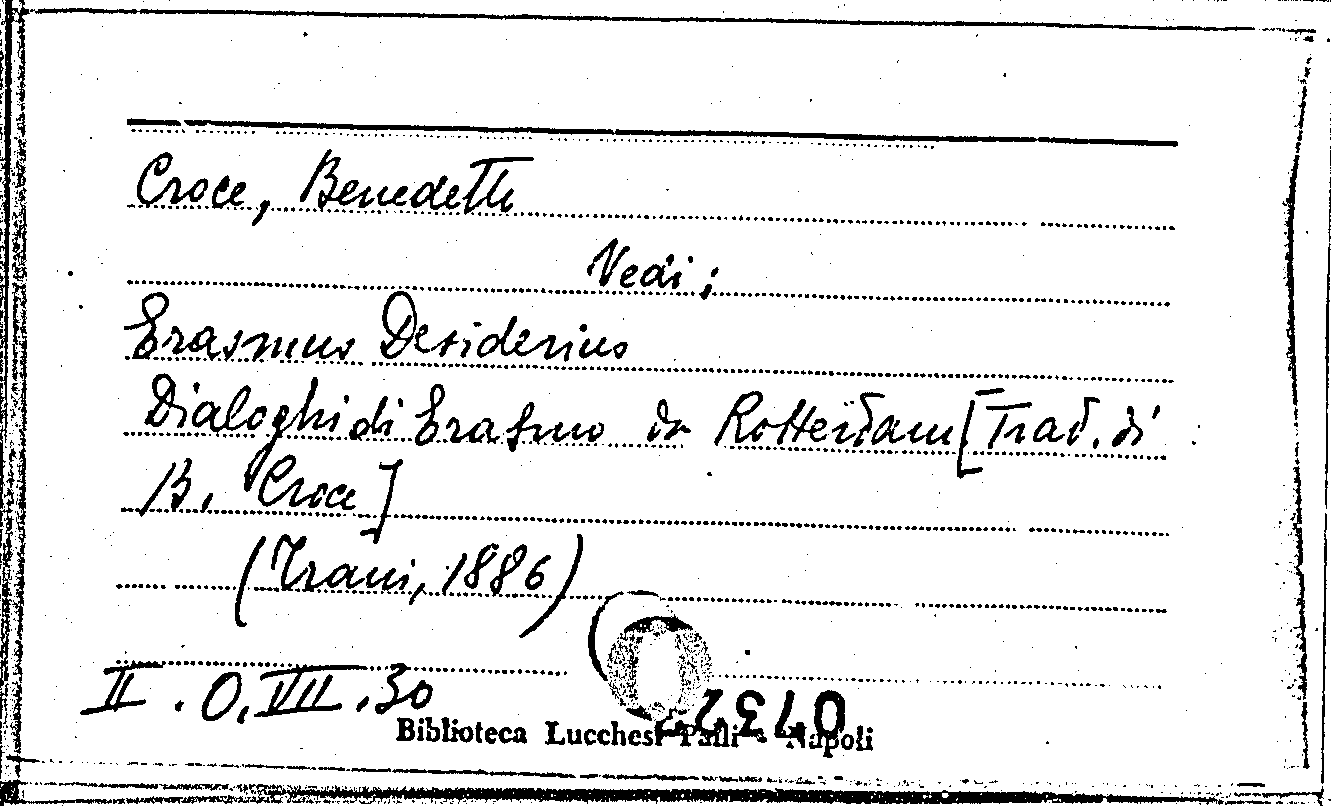 Croce, Benedetto
Vedi:
Erasmus Desiderius
Dialoghi di Erasmo da Rotterdam [Trad. di
B. Croce]
(Trani, 1886)
II. O. VII. 30
Biblioteca Lucchesi Palli - Napoli